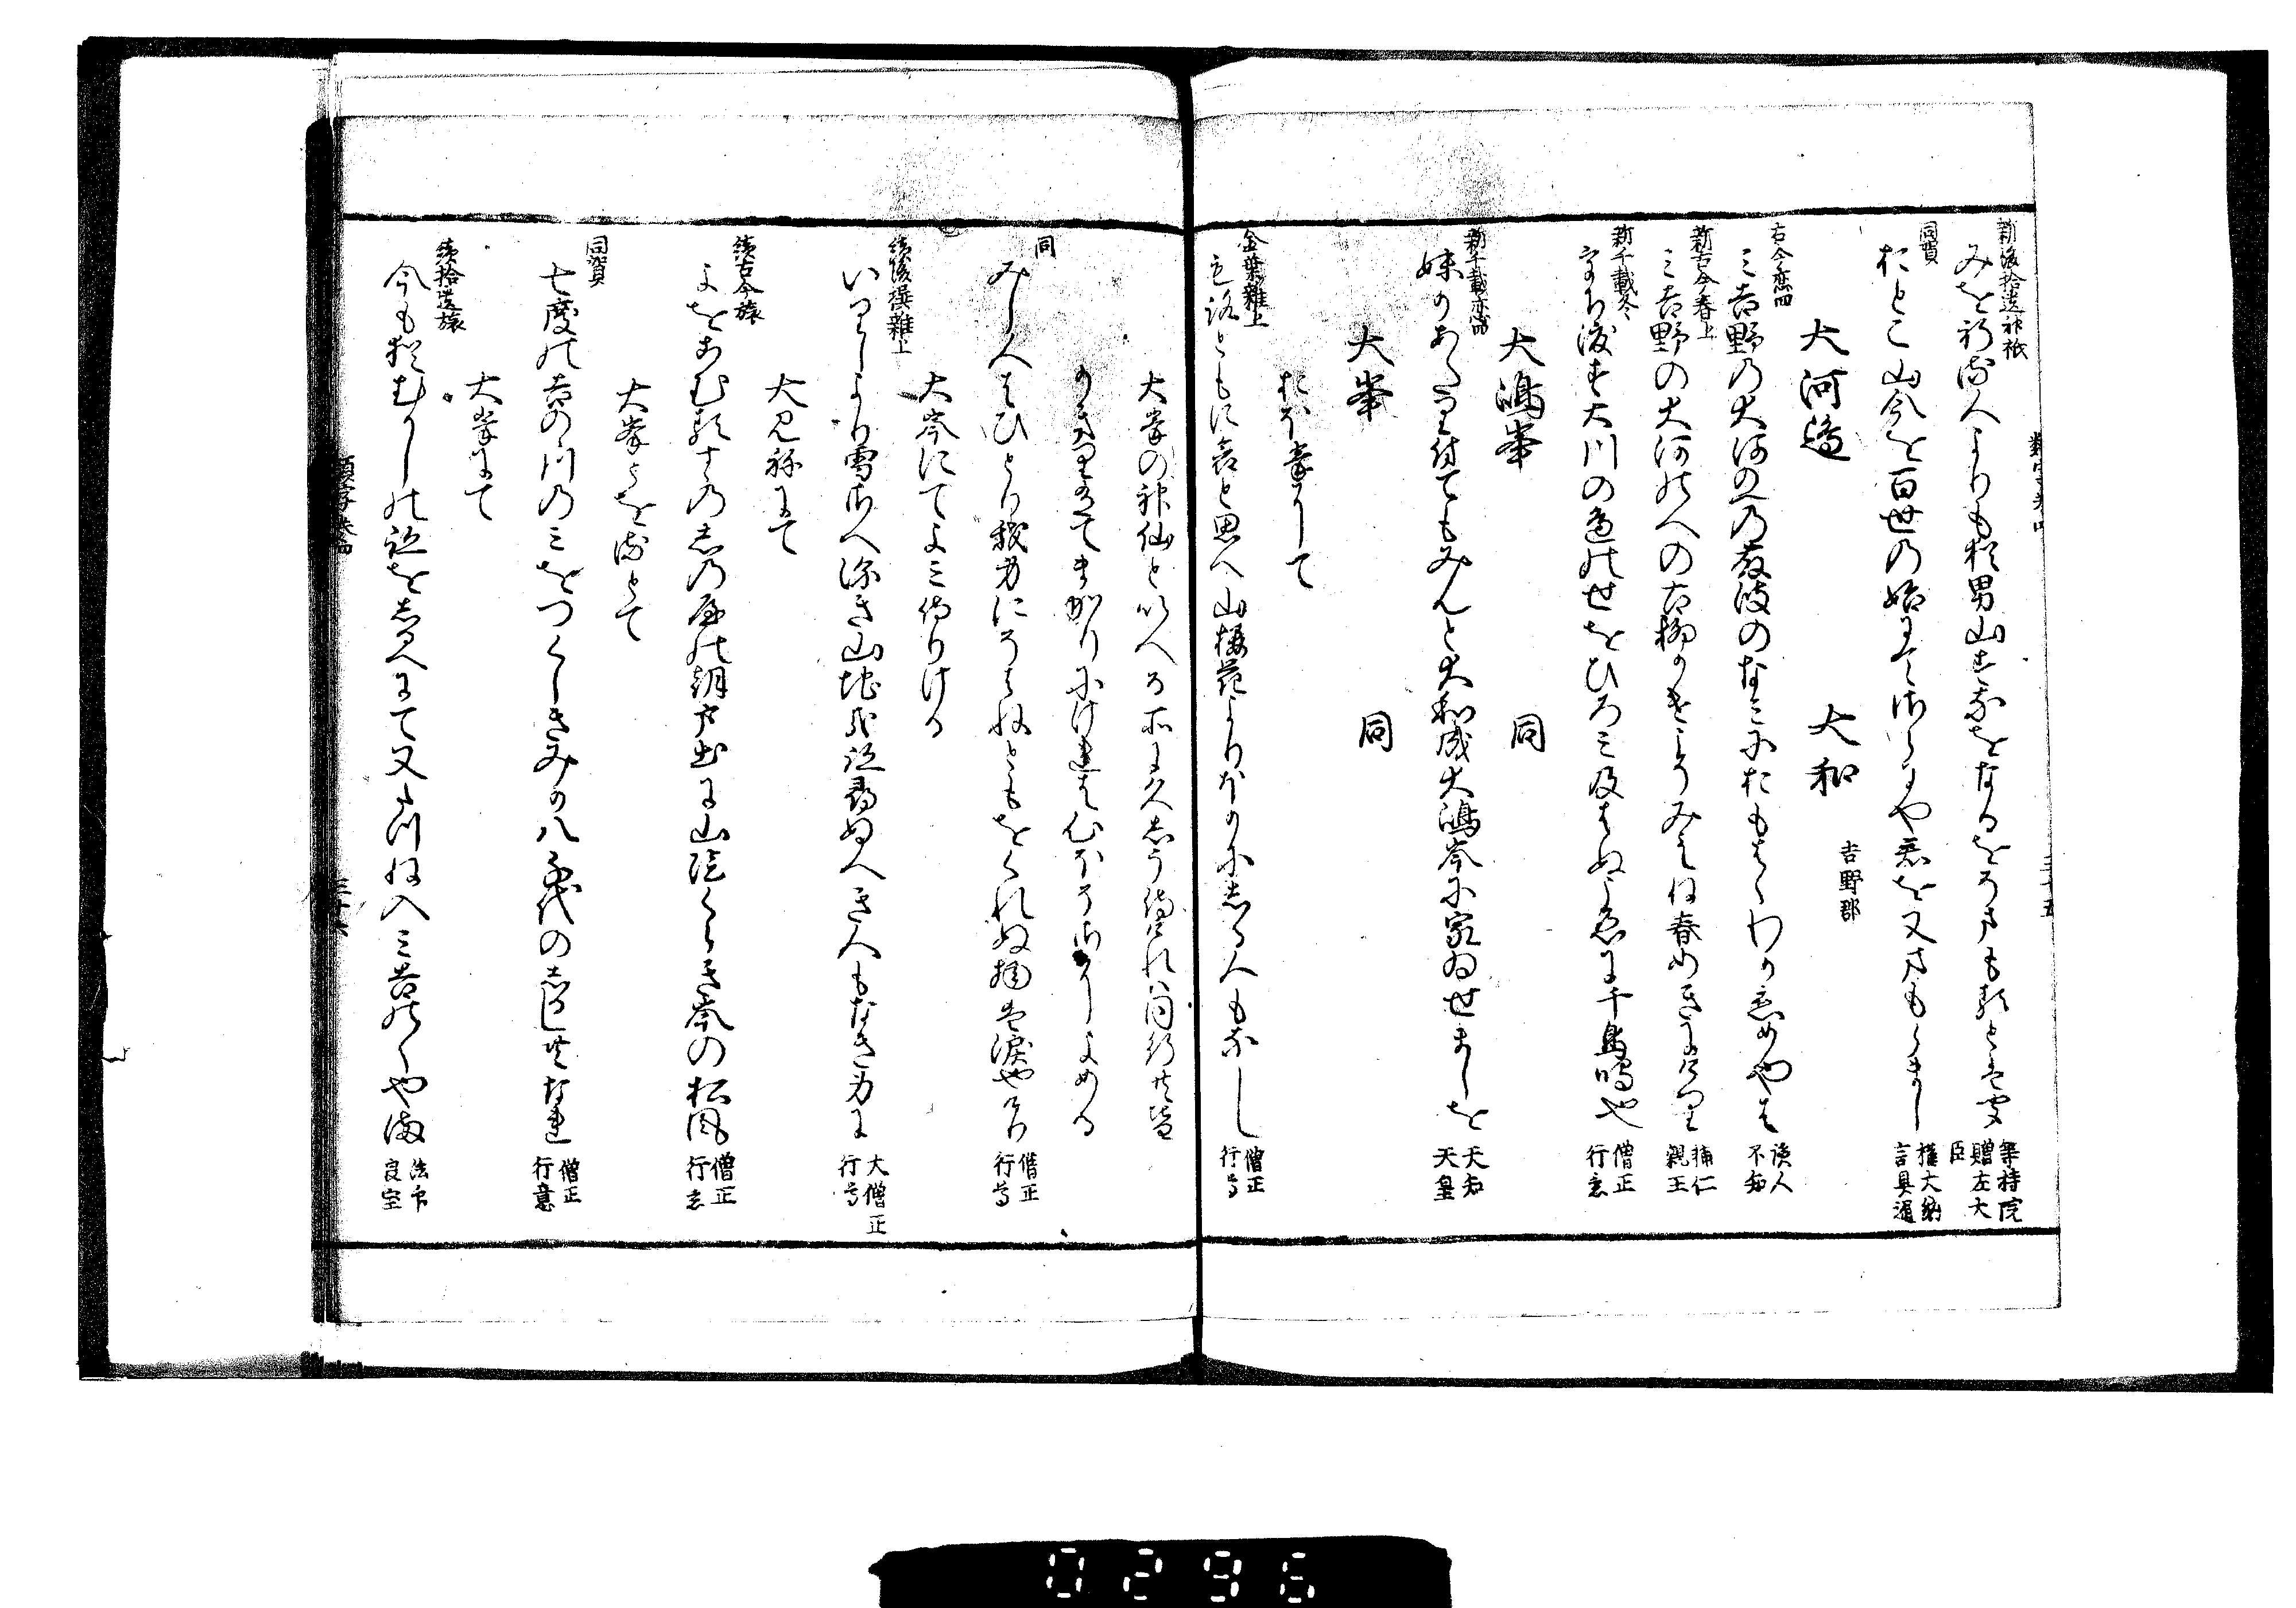 新後拾遺神祇
みを祈る人よりも猶男山すなをなるをそまもるとはきく
等持院贈左大臣
同賀
おとこ山今を百世の始にて
権大納言具通
大河邊 大和 吉野郡
古今恋四
三吉野の大河のへの藤波のなみにおもはゝわか恋めやは
読人不知
新古今春上
三吉野の大河のへの古柳かけこそみえね春めきにけり
輔仁親王
新千載冬
大川の邊のせをひろみ及はぬこゑに千鳥鳴也
僧正行意
大鴻峯 同
新千載恋四
妹かあたり付てもみんと大和成大鴻岑に家ゐせましを
天智天皇
大峯 同
金葉雑上
おほ峯にて
もろともに哀と思へ山桜花よりほかにしる人もなし
僧正行尊
大峯の神仙といへる所に久しう侍けれは同行共皆
かきりありてまかりにけれは心ほそさによめる
同
みし人はひとり我身にそはねともをくれぬ物は涙也けり
僧正行尊
大岑にてよみ侍りける
続後撰雑上
いつくより雪さへ深き山地哉跡尋ぬへき人もなき身に
大僧正行尊
大見祢にて
続古今旅
よをこむるすゝのしの屋の朝戸出に山陰くらき岑の松風
僧正行意
大峯とをるとて
同賀
七度の吉の川のみをつくしきみか八千代のしるし共なれ
僧正行意
大峯にて
続拾遺旅
今も猶むかしの跡をしるへにて又たつね入三吉のゝやま
法印良宝
類字巻四 三十六